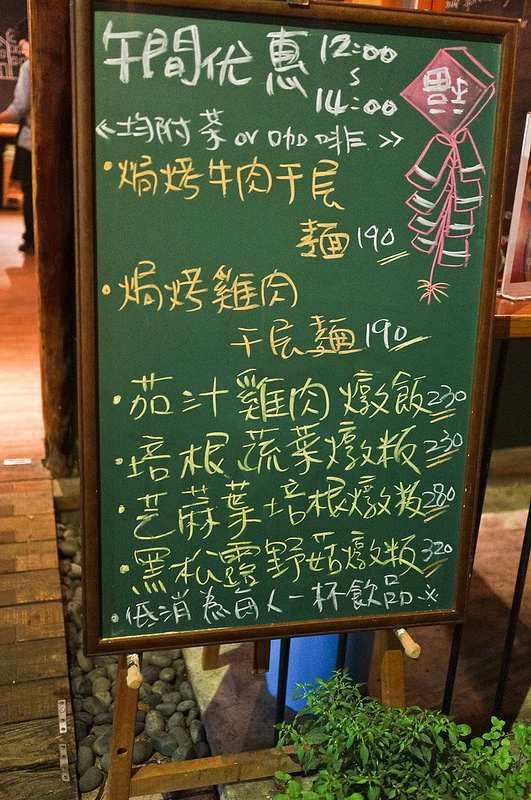 午間优惠 12:00
~
14:00
福
<<均附茶or咖啡>>
·焗烤牛肉千层
麵190
·焗烤雞肉
千层麵190
·茄汁雞肉燉飯230
·培根蔬菜燉飯230
·芝蔴葉培根燉飯280
·黑松露野菇燉飯320
·低消為每人一杯飲品※